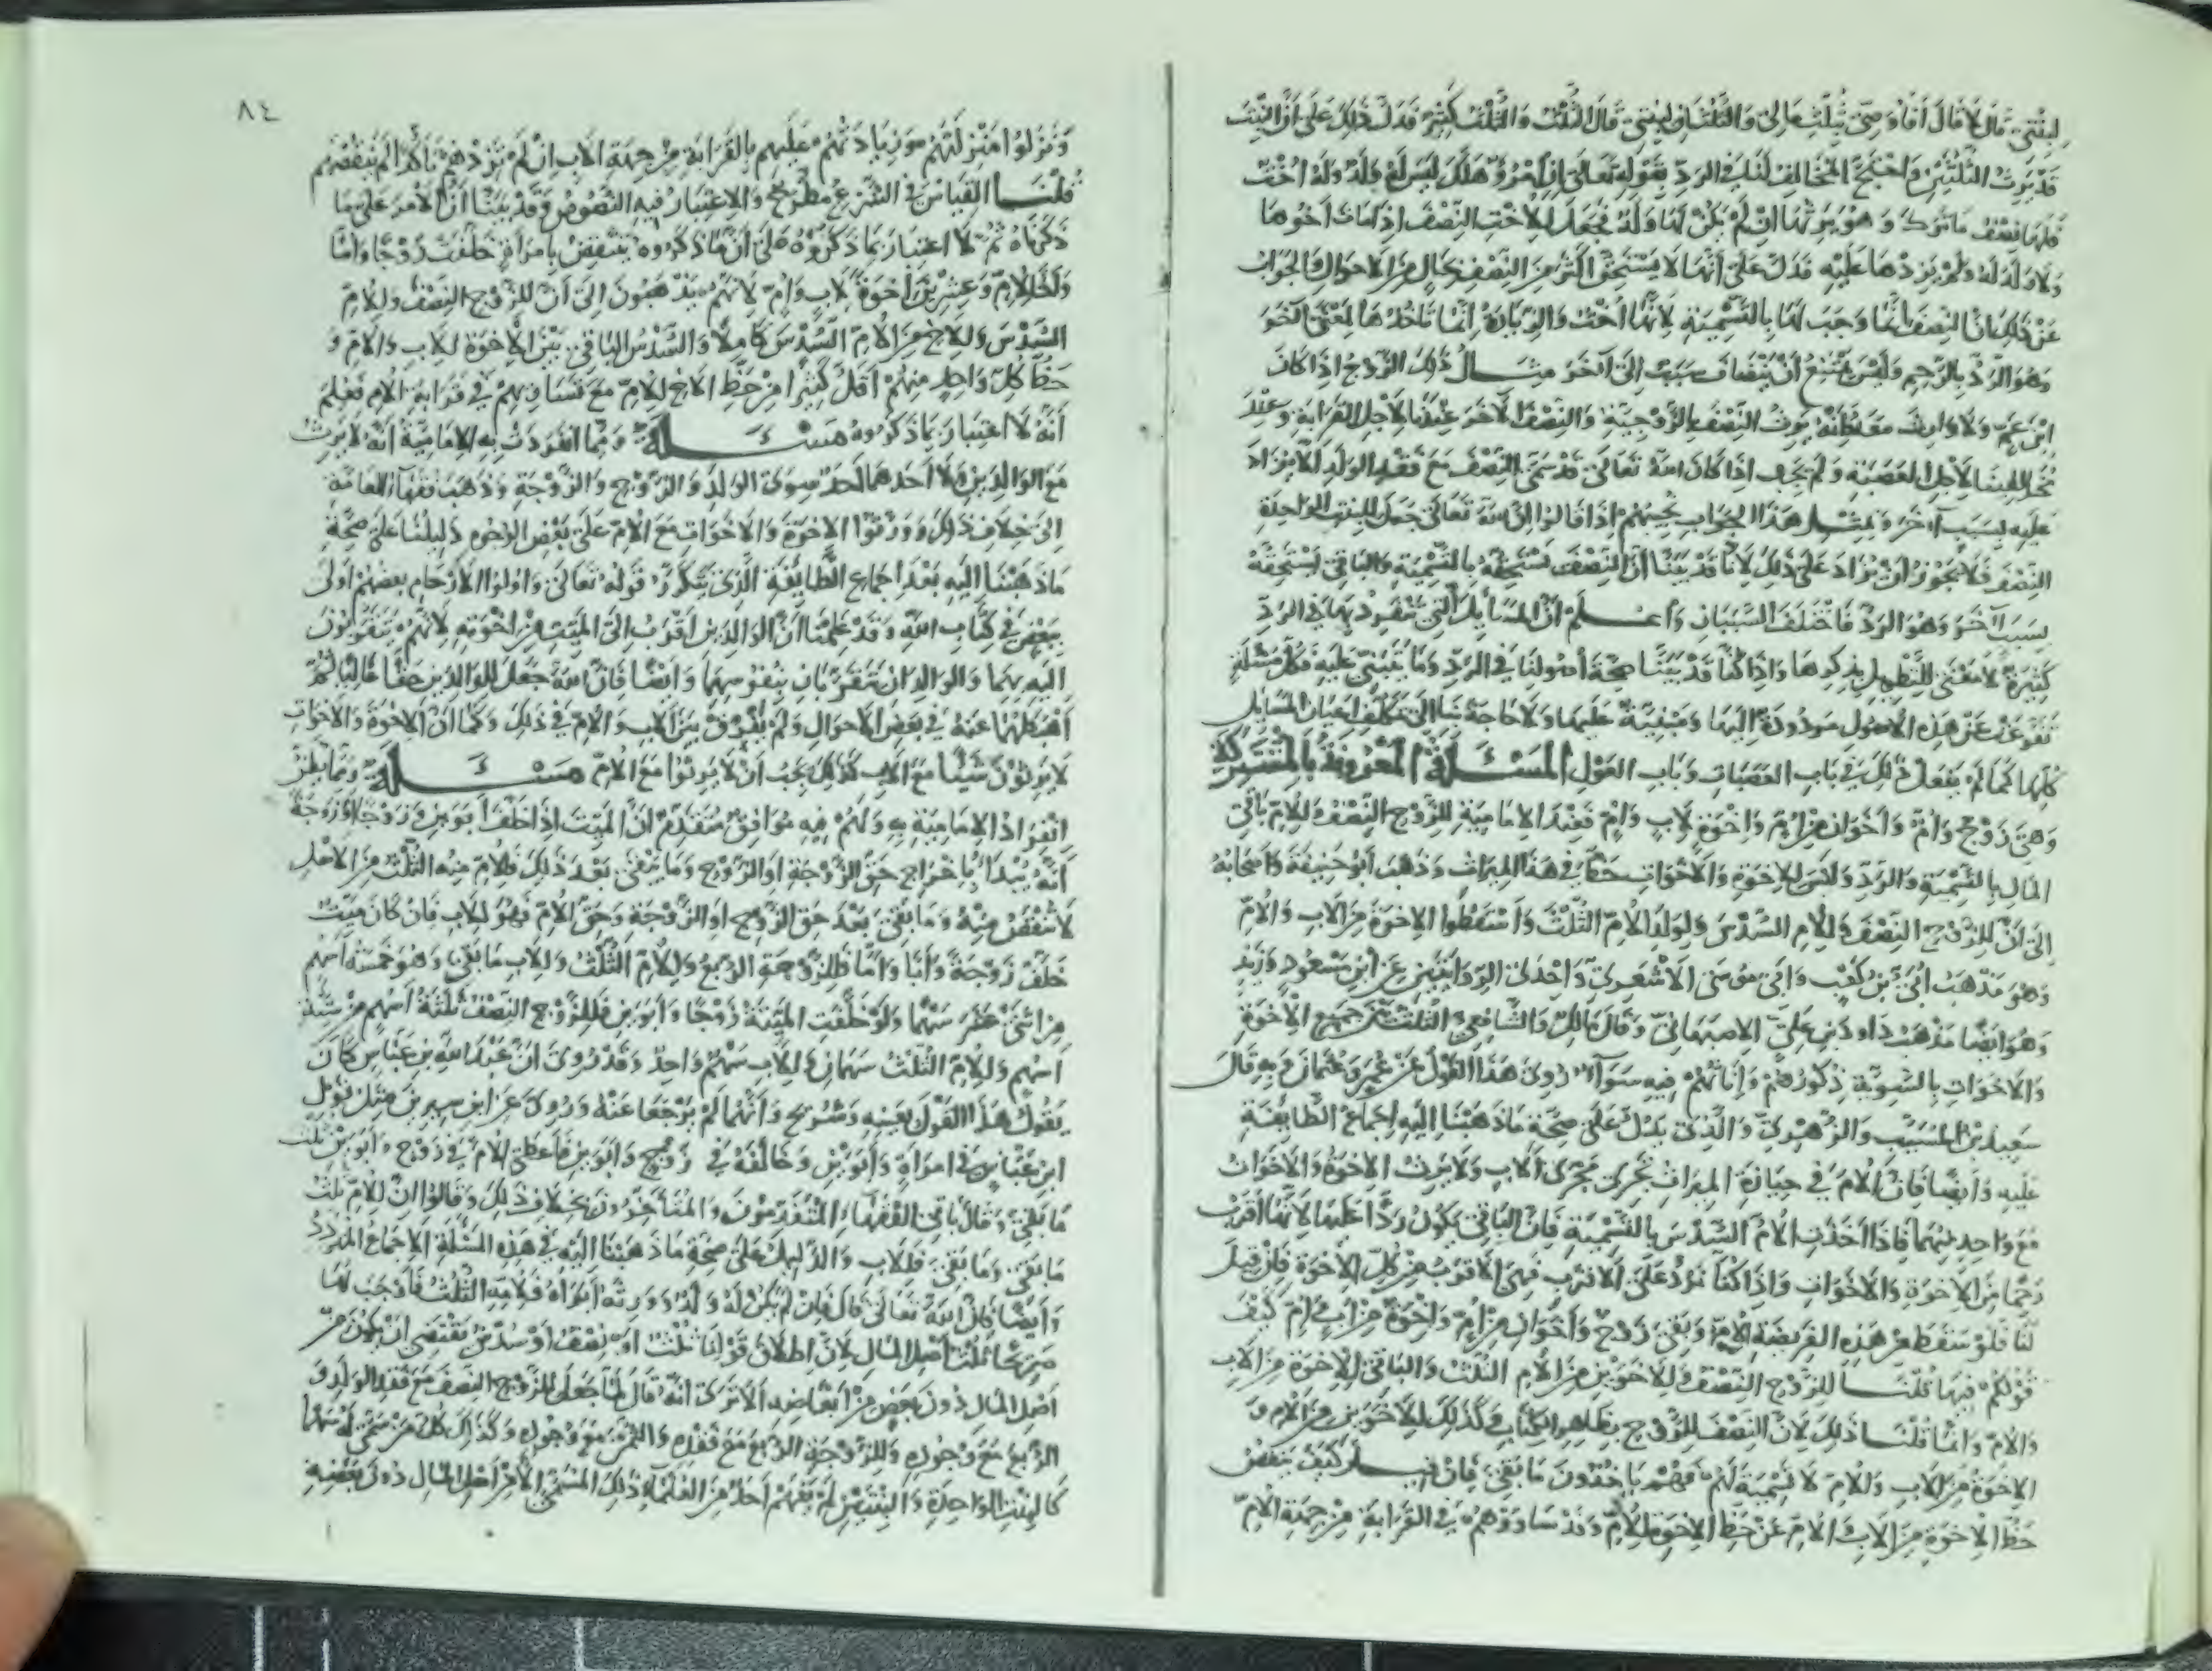 لابنتي قال لا قال أفأوصي بثلث مالي والثلثان لبنتي قال الثلث والثلث كثير فدل ذلك على أن البنت
قد ترث الثلثين واحتج المخالف لنا في الرد بقوله تعالى إن امرؤ هلك ليس له ولد وله أخت
فلها نصف ما ترك وهو يرثها إن لم يكن لها ولد فجعل للأخت النصف إذا مات أخوها
ولا ولد له ولم يزدها عليه فدل على أنها لا تستحق أكثر من النصف بحال من الأحوال الجواب
عن ذلك أن النصف إنما وجب لها بالتسمية لأنها أخت والزيادة إنما تأخذها لمعنى آخر
وهو الرد بالرحم وليس يمتنع أن ينضاف سبب إلى آخر مثال ذلك الزوج إذا كان
ابن عم ولا وارث معه فإنه يرث النصف بالزوجية والنصف الآخر عندنا لأجل القرابة وعند
مخالفينا لأجل العصبة ولم يجب إذا كان الله تعالى قد سمى النصف مع فقد الولد ألا يزاد
عليه لسبب آخر وبمثل هذا الجواب نجيبهم إذا قالوا إن الله تعالى جعل للبنت الواحدة
النصف فلا يجوز أن يزاد على ذلك لأنا قد بينا أن النصف تستحقه بالتسمية والباقي تستحقه
بسبب آخر وهو الرد فاختلف السببان واعلم أن المسائل التي تنفرد بها في الرد
كثيرة لا معنى للتطويل بذكرها وإذا كنا قد بينا صحة أصولنا في الرد وما يبنى عليه فكل مسئلة
تفرعت عن هذه الأصول مردودة إليها ومبنية عليها ولا حاجة بنا إلى تكلف أعيان المسايل
كلها كما لم نفعل ذلك في باب العصبات وباب العول المسئلة المعروفة بالمشتركة
وهي زوج وأم وأخوان من أم وإخوة لأب وأم فعند الإمامية للزوج النصف وللأم باقي
المال بالتسمية والرد وليس للإخوة والأخوات حظ في هذا الميراث وذهب أبو حنيفة وأصحابه
إلى أن للزوج النصف وللأم السدس ولولد الأم الثلث وأسقطوا الإخوة من الأب والأم
وهو مذهب أبي بن كعب وأبي موسى الأشعري وإحدى الروايتين عن ابن مسعود وزيد
وهو أيضا مذهب داود بن علي الاصبهاني وقال مالك والشافعي الثلث بين جميع الإخوة
والأخوات بالسوية ذكورهم وإناثهم فيه سواء روي هذا القول عن عمر وعثمان وبه قال
سعيد بن المسيب والزهري والذي يدل على صحة ما ذهبنا إليه إجماع الطايفة
عليه وأيضا فإن الأم في حيازة الميراث تجري مجرى الأب ولا يرث الإخوة والأخوات
مع واحد منهما فإذا أخذت الأم السدس بالتسمية فإن الباقي يكون ردا عليها لأنها أقرب
رحما من الإخوة والأخوات وإذا كنا نرد على الأقرب فهي الأقرب من كل الإخوة فإن قيل
لنا فلو سقط من هذه الفريضة الأم وبقي زوج وأخوان من أم وإخوة من أب وأم كيف
قولكم فيها قلنا للزوج النصف وللأخوين من الأم الثلث والباقي للإخوة من الأب
والأم وإنما قلنا ذلك لأن النصف للزوج بظاهر الكتاب وكذلك للأخوين من الأم و
الإخوة من الأب والأم لا تسمية لهم فهم يأخذون ما بقي فإن قيل كيف ينقص
حظ الإخوة من الأب والأم عن حظ الإخوة للأم وقد ساووهم في القرابة من جهة الأم
٨٤
ونزلوا منزلتهم مع زيادتهم عليهم بالقرابة من جهة الأب إن لم تزدهم تأكدا لم ينقصهم
قلنا القياس في الشرع مطرح والاعتبار فيه النصوص وقد بينا أن الأمر على ما
ذكرناه ثم لا اعتبار بما ذكروه على أن ما ذكروه ينتقض بامرأة خلفت زوجا وأما
وأخا لأم وعشرين أخوة لأب وأم لأنهم يذهبون إلى أن للزوج النصف وللأم
السدس وللأخ من الأم السدس كاملا والسدس الباقي بين الإخوة للأب والأم و
حظ كل واحد منهم أقل كثيرا من حظ الأخ للأم مع تساويهم في قرابة الأم فعلم
أنه لا اعتبار بما ذكروه مسئلة ومما انفردت به الإمامية أنه لا يرث
مع الوالدين ولا أحدهما أحد سوى الولد والزوج والزوجة وذهب فقهاء العامة
إلى خلاف ذلك وورثوا الإخوة والأخوات مع الأم على بعض الوجوه دليلنا على صحة
ما ذهبنا إليه بعد إجماع الطايفة الذي يتكرر قوله تعالى وأولوا الأرحام بعضهم أولى
ببعض في كتاب الله وقد علمنا أن الوالدين أقرب إلى الميت من إخوته لأنهم يتقربون
إليه بهما والوالدان يتقربان بنفوسهما وأيضا فإن الله جعل للوالدين حقا عاليا ثم
أهبطهما عنه في بعض الأحوال ولم يفرق بين الأب والأم في ذلك وكما أن الإخوة والأخوات
لا يرثون شيئا مع الأب كذلك يجب أن لا يرثوا مع الأم مسئلة ومما يظن
انفراد الإمامية به ولهم فيه موافق متقدم أن الميت إذا خلف أبوين وزوجا أو زوجة
أنه يبدأ بإخراج حق الزوجة أو الزوج وما يبقى بعد ذلك فللأم منه الثلث من الأصل
لا تنقص منه وما بقي بعد حق الزوج أو الزوجة وحق الأم فهو للأب فإن كان ميت
خلف زوجة وأبا وأما فللزوجة الربع وللأم الثلث وللأب ما بقي وهو خمسة أسهم
من اثني عشر سهما ولو خلفت الميتة زوجا وأبوين فللزوج النصف ثلثة أسهم من ستة
أسهم وللأم الثلث سهمان وللأب سهم واحد وقد روي أن عبد الله بن عباس كان
يقول هذا القول بعينه وشريح وأنهما لم يرجعا عنه وروي عن ابن سيرين مثل قول
ابن عباس في امرأة وأبوين وخالفه في زوج وأبوين فأعطى الأم في زوج وأبوين ثلث
ما بقي وقال باقي الفقهاء المتقدمون والمتأخرون بخلاف ذلك وقالوا إن للأم ثلث
ما بقي وما بقي فللأب والدليل على صحة ما ذهبنا إليه في هذه المسئلة الإجماع المتردد
وأيضا فإن الله تعالى قال فإن لم يكن له ولد وورثه أبواه فلأمه الثلث فأوجب لها
صريحا ثلث أصل المال لأن إطلاق قولنا ثلث أو نصف أو سدس يقتضي أن يكون من
أصل المال دون بعض من أبعاضه ألا ترى أنه قال لما جعل للزوج النصف مع فقد الولد و
الربع مع وجوده وللزوجة الربع مع فقده والثمن مع وجوده وكذلك كل من سمي له سهما
كالبنت الواحدة والبنتين لم يفهم أحد من العلماء ذلك المسمى إلا من أصل المال دون بعضه